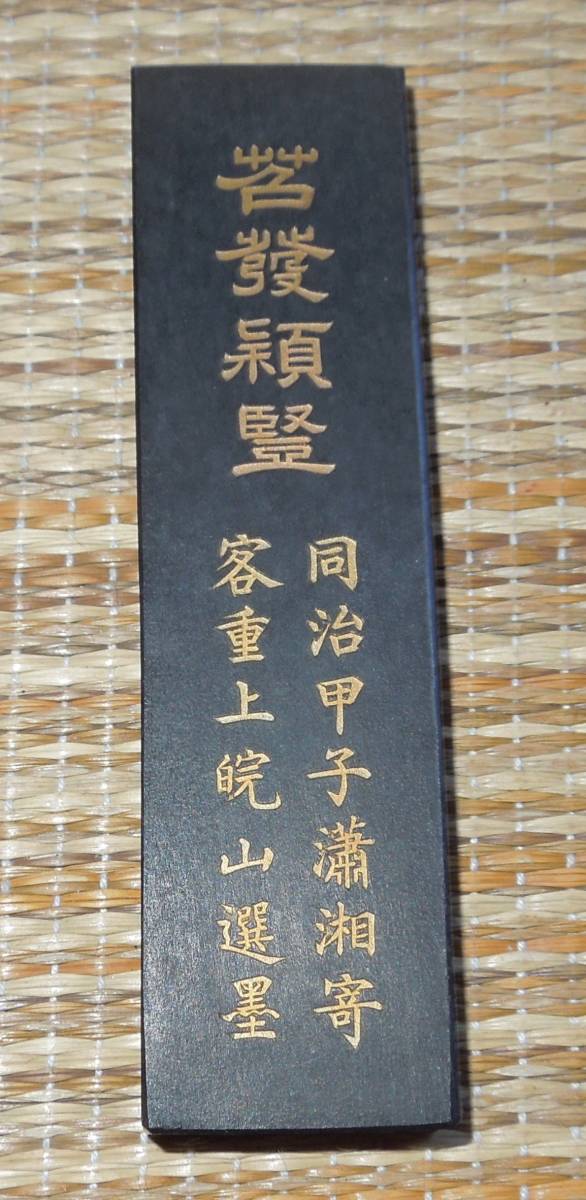 苕發穎豎
同治甲子瀟湘寄
客重上皖山選墨